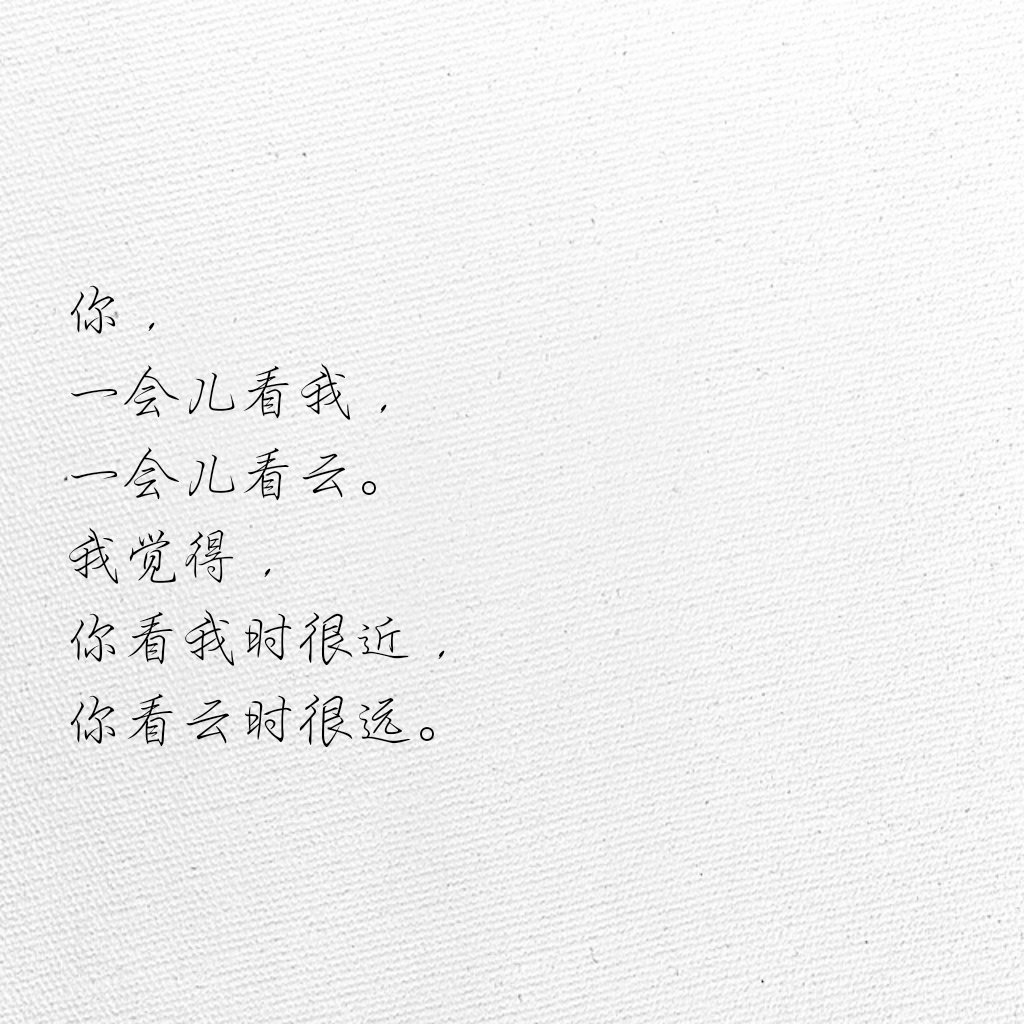 你，
一会儿看我，
一会儿看云。
我觉得，
你看我时很近，
你看云时很远。